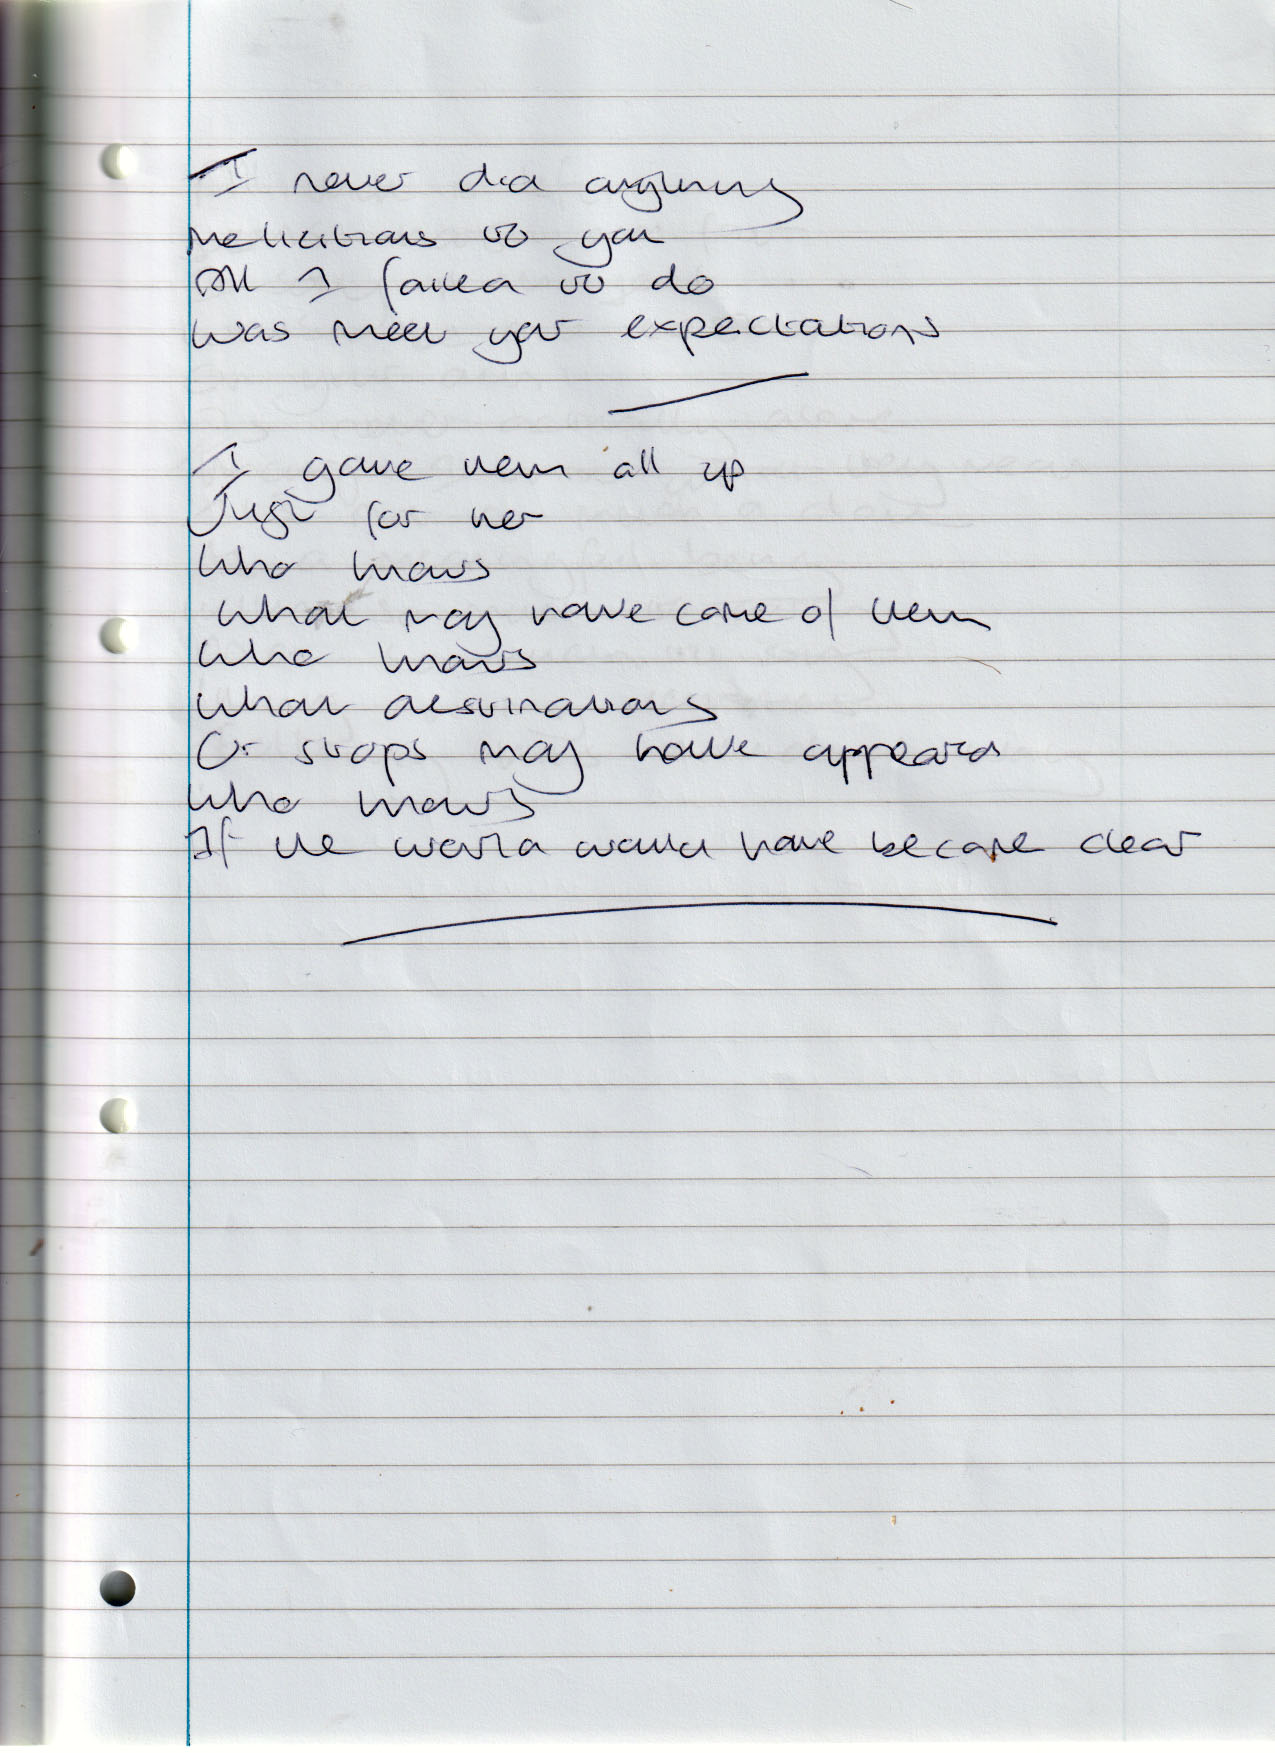 I never did anything
Malicitious to you
All I failed to do
Was meet your expectations
I gave them all up
Just for her
Who knows
What may have come of them
Who knows
What destinations
Or stops may have appeared
Who knows
If the world would have become clear